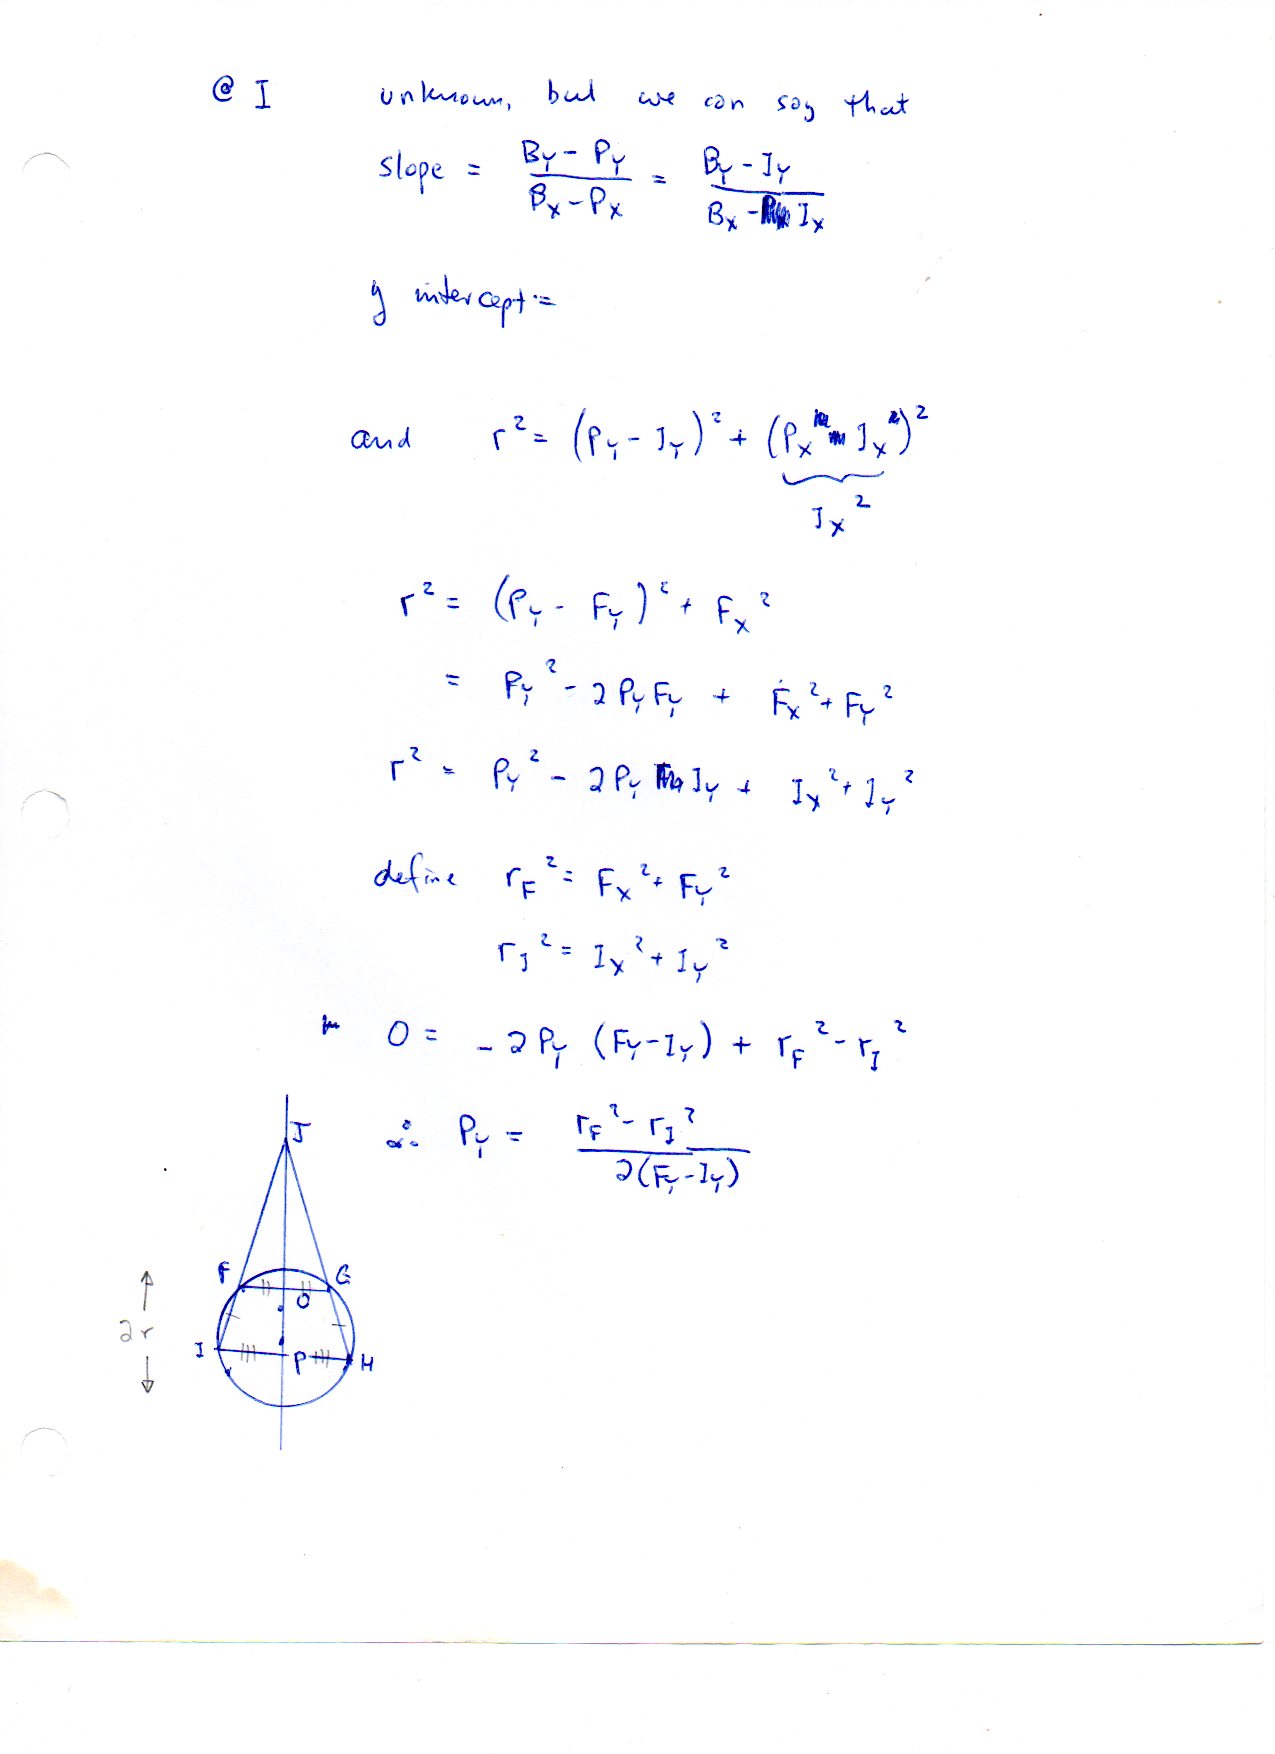 @ I unknown, but we can say that
slope = (B_Y - P_Y)/(B_X - P_X) = (B_Y - I_Y)/(B_X - I_X)
y intercept =
and r² = (P_Y - I_Y)² + (P_X I_X)²
I_X²
r² = (P_Y - F_Y)² + F_X²
= P_Y² - 2P_Y F_Y + F_X² + F_Y²
r² = P_Y² - 2P_Y I_Y + I_X² + I_Y²
define r_F² = F_X² + F_Y²
r_I² = I_X² + I_Y²
0 = - 2P_Y (F_Y - I_Y) + r_F² - r_I²
∴ P_Y = (r_F² - r_I²)/(2(F_Y - I_Y))
J
F G
O
2r
I P H